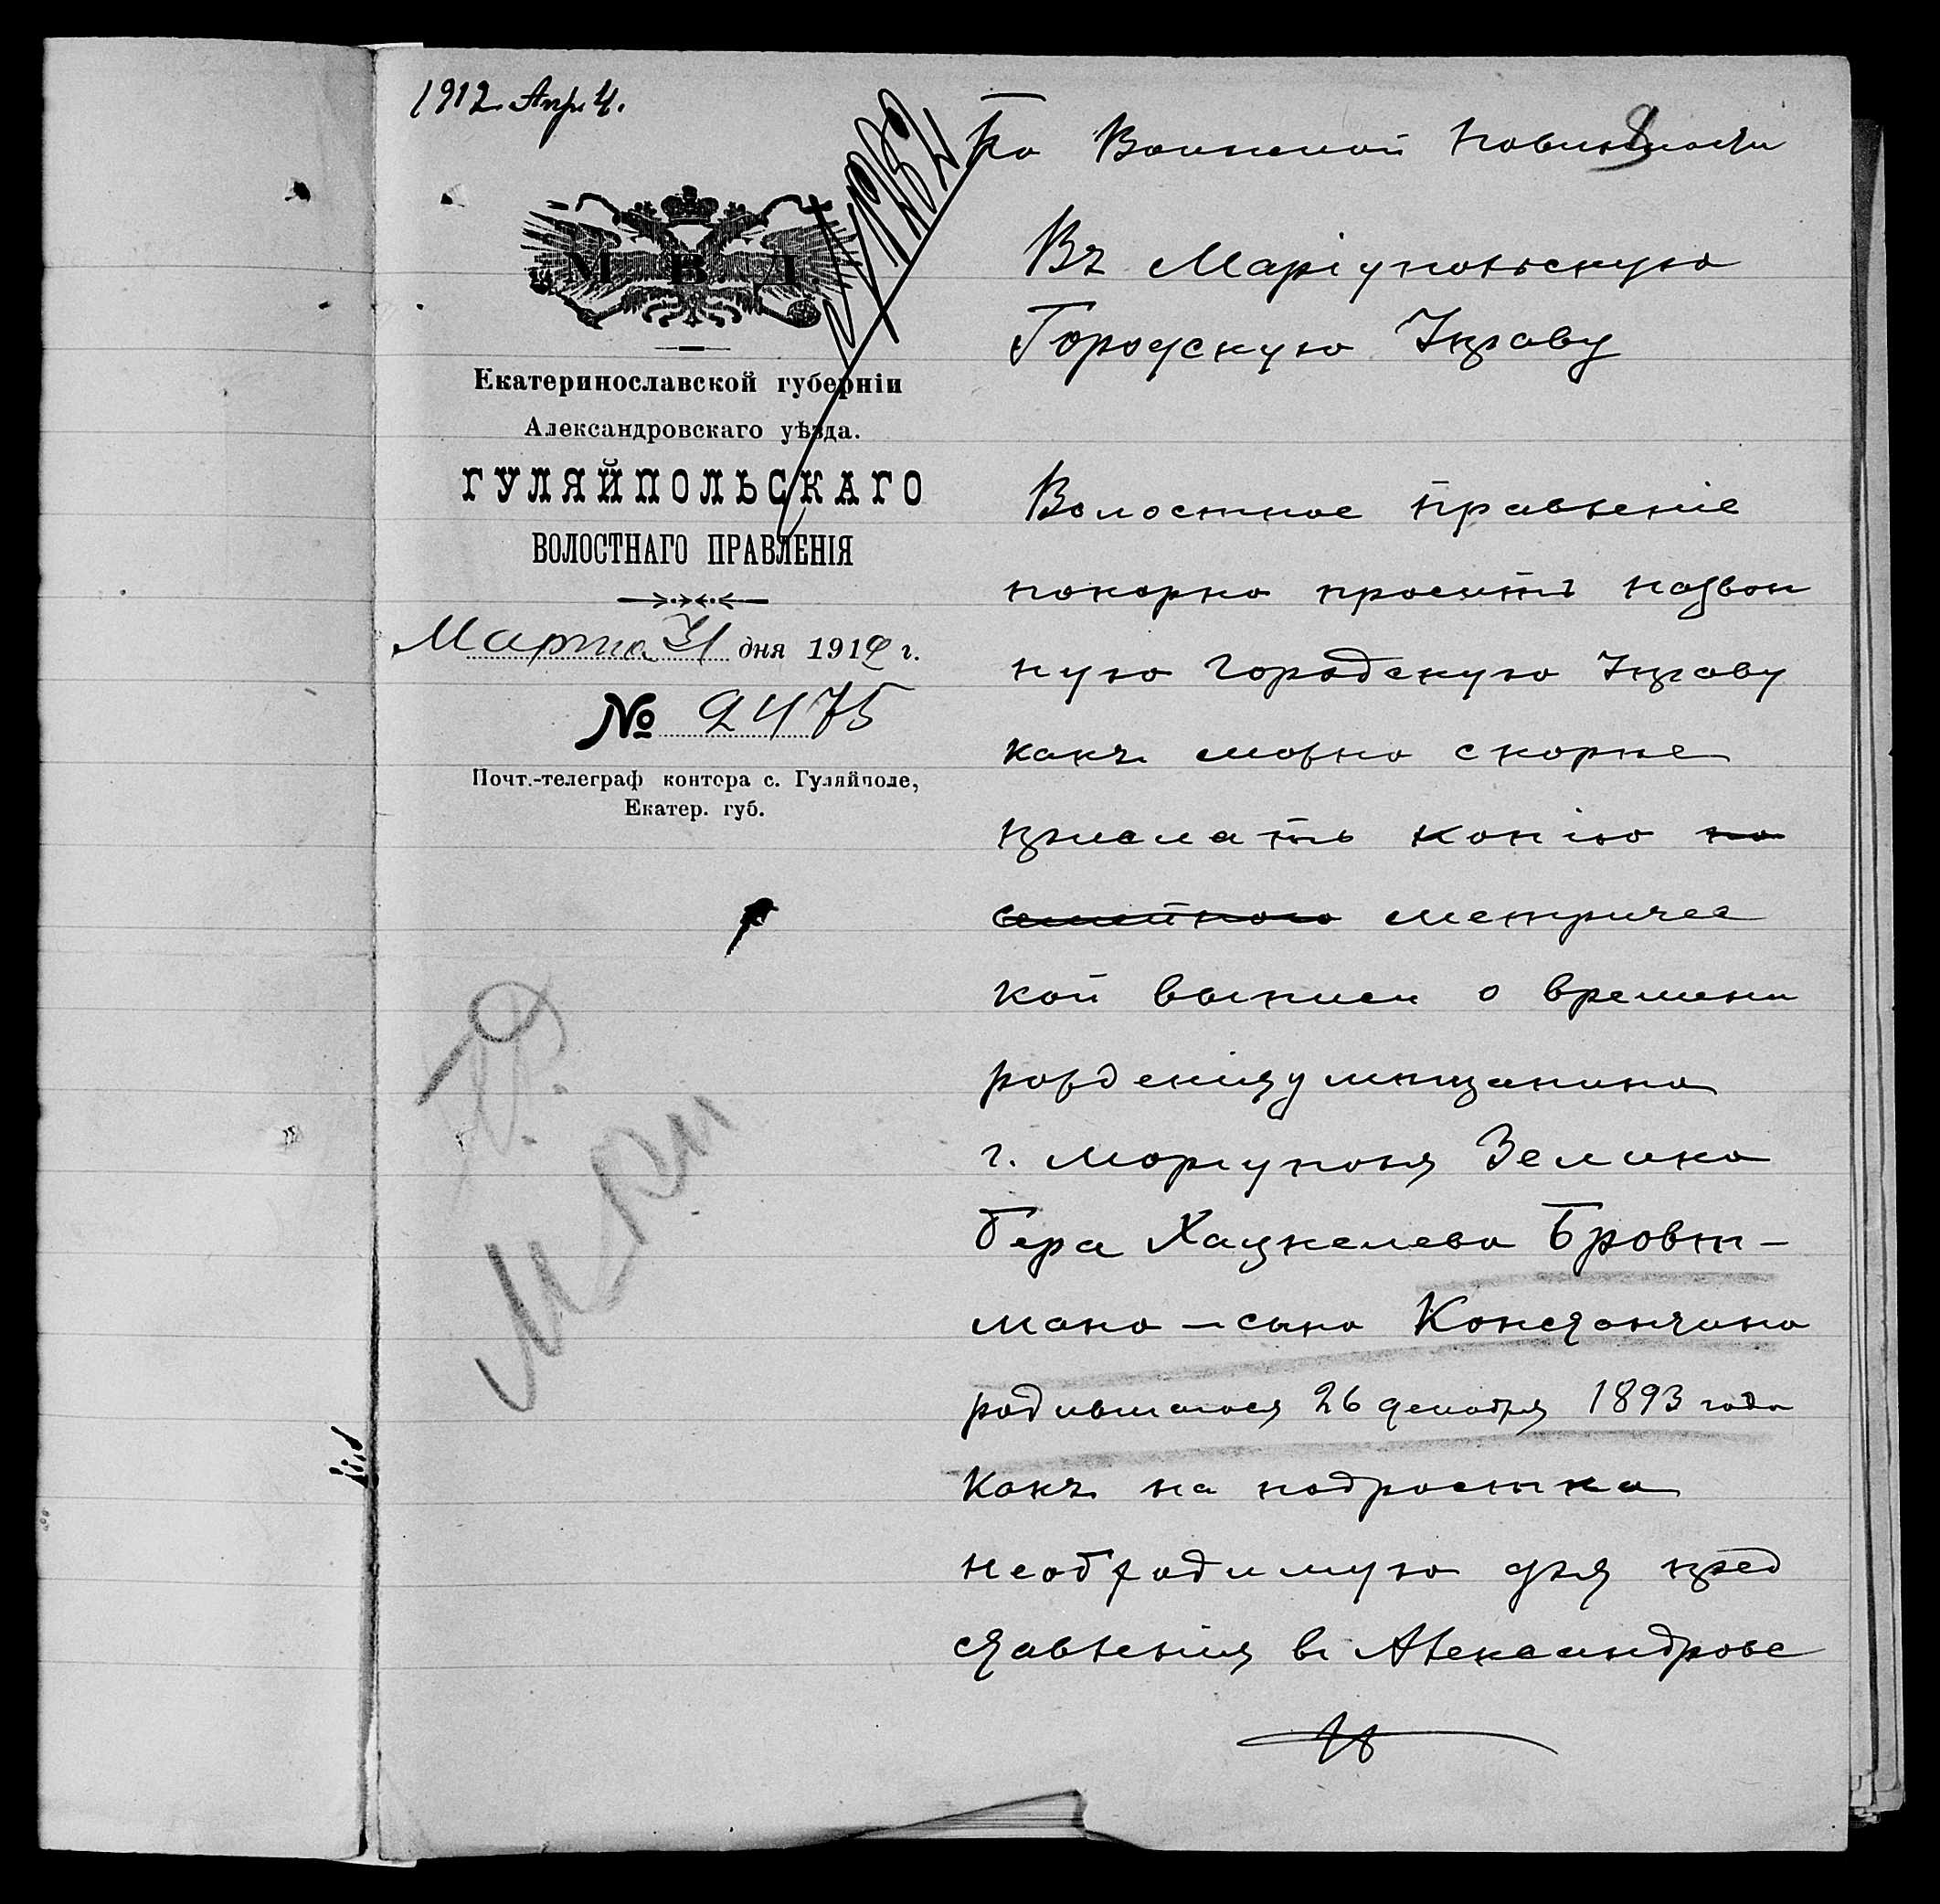 1912. Апр. 4.
М В Д
Екатеринославской губерніи
Александровскаго уѣзда.
ГУЛЯЙПОЛЬСКАГО
ВОЛОСТНАГО ПРАВЛЕНІЯ
Марта 31 дня 1912 г.
№ 2475
Почт.-телеграф контора с. Гуляйполе,
Екатер. губ.
По Воинской повинности
Въ Маріупольскую
Городскую Управу
Волостное правленіе
покорно проситъ
городскую Управу
какъ можно скорѣе
прислать копію по
семейного метричес
кой выписи о времени
рожденія у мѣщанина
г. Мариуполя Зелика
Бера Хацкелева Бровт-
мана - сына Константина
родившагося 26 декабря 1893 года
какъ на подростка
необходимую для пред
ставленія въ Александровс